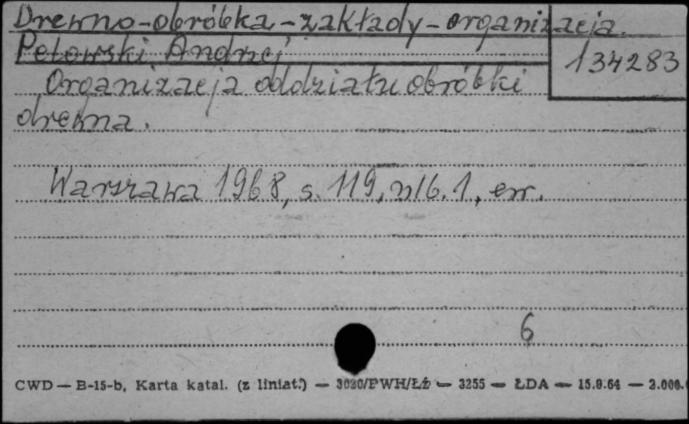 Drewno-obróbka-zakłady-organizacja.
Petowski Andrzej
134283
Organizacja oddziału obróbki
drewna.
Warszawa 1968, s. 119, nlb. 1, err.
6
CWD — B-15-b, Karta katal. (z liniat.) — 3020/PWH/Łż — 3255 — ŁDA — 15.9.64 — 2.000.